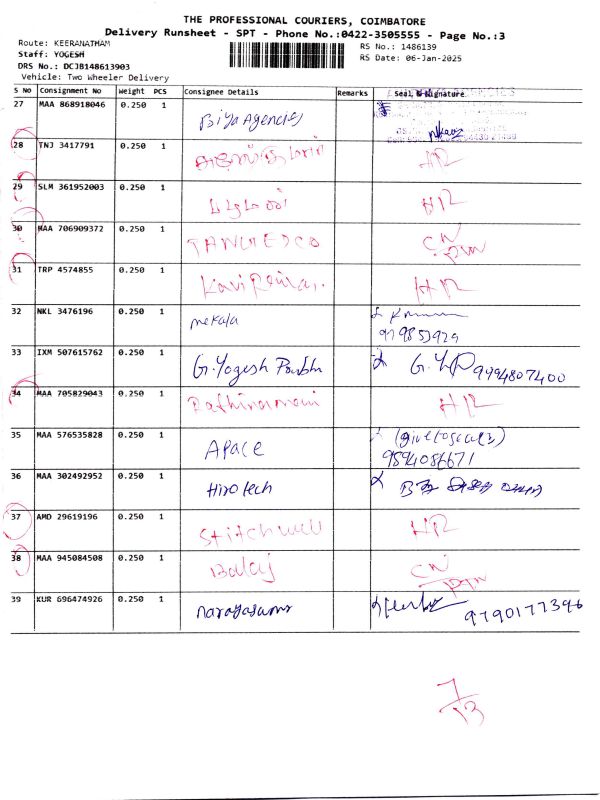 THE PROFESSIONAL COURIERS, COIMBATORE
Delivery Runsheet - SPT - Phone No.:0422-3505555 - Page No.:3
Route: KEERANATHAM
RS No.: 1486139
Staff: YOGESH
RS Date: 06-Jan-2025
DRS No.: DCJB148613903
Vehicle: Two Wheeler Delivery
S No Consignment No Weight PCS Consignee Details Remarks Seal & Signature
27 MAA 868918046 0.250 1 Biya Agencies
28 TNJ 3417791 0.250 1 HR
29 SLM 361952003 0.250 1 HR
30 MAA 706909372 0.250 1 TANGEDCO CN
31 TRP 4574855 0.250 1 HR
32 NKL 3476196 0.250 1 mekala
33 IXM 507615762 0.250 1 G.Yogesh Prabhu G.YP 9994807400
34 MAA 705829043 0.250 1 Rathinamani HR
35 MAA 576535828 0.250 1 Apace
9894086671
36 MAA 302492952 0.250 1 Hirotech
37 AMD 29619196 0.250 1 Stitchwell HR
38 MAA 945084508 0.250 1 Balaj CN
39 KUR 696474926 0.250 1 9790177396
7
13